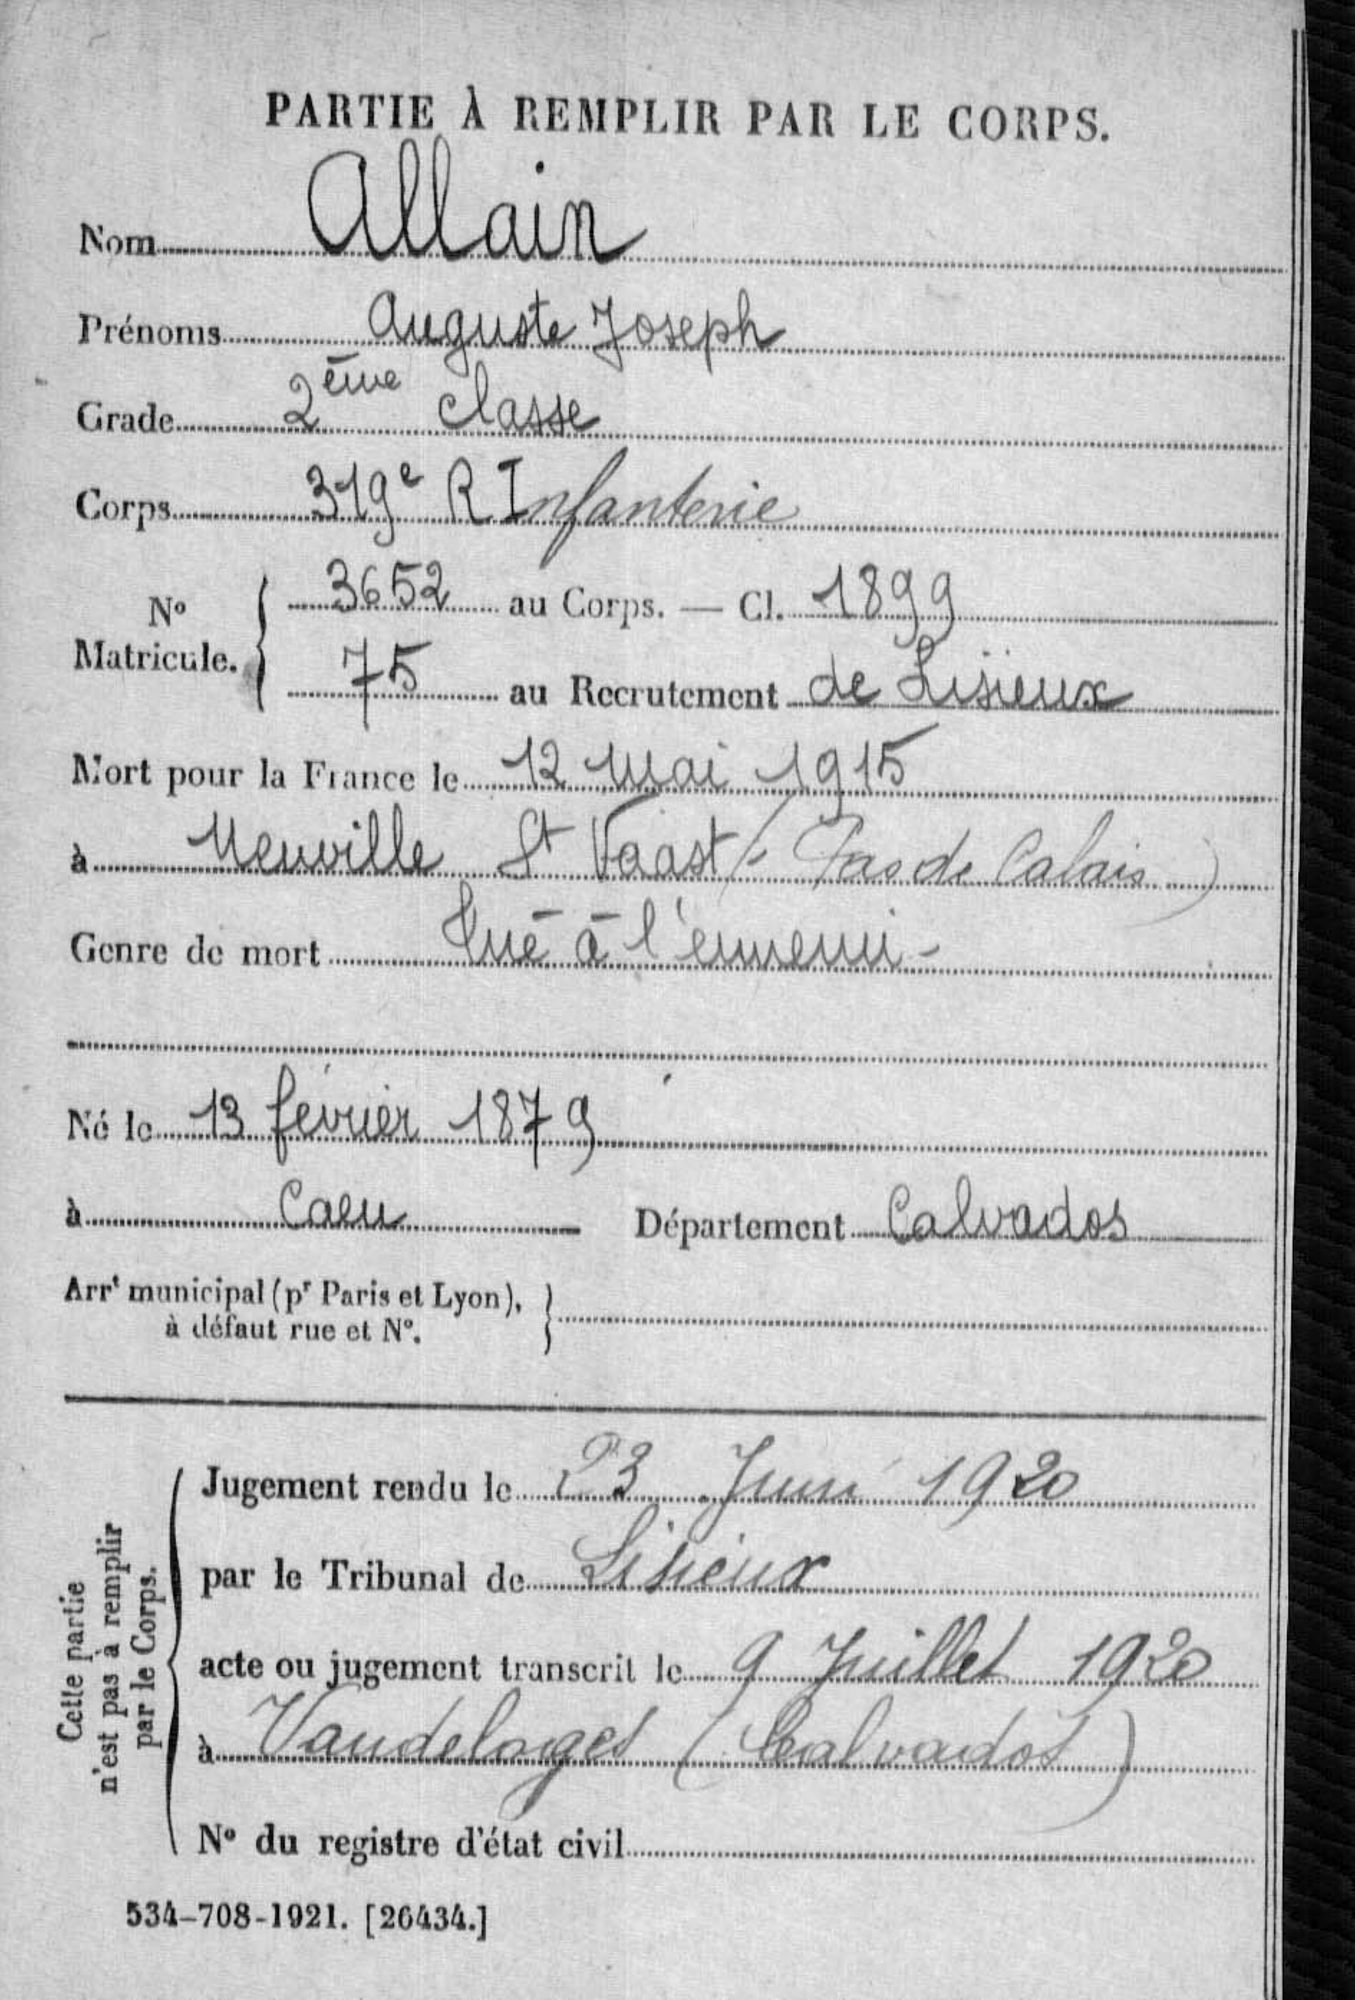 PARTIE À REMPLIR PAR LE CORPS.
Nom Allain
Prénoms Auguste Joseph
Grade 2ème Classe
Corps 319e R Infanterie
No Matricule. { 3652 au Corps. — Cl. 1899
75 au Recrutement de Lisieux
Mort pour la France le 12 Mai 1915
à Neuville St Vaast (Pas de Calais)
Genre de mort Tué à l'ennemi -
Né le 13 février 1879
à Caen Département Calvados
Arrt municipal (pr Paris et Lyon),
à défaut rue et No. }
Cette partie
n'est pas à remplir
par le Corps.
Jugement rendu le 23 Juin 1920
par le Tribunal de Lisieux
acte ou jugement transcrit le 9 Juillet 1920
à Vaudeloges (Calvados)
No du registre d'état civil
534-708-1921. [26434.]